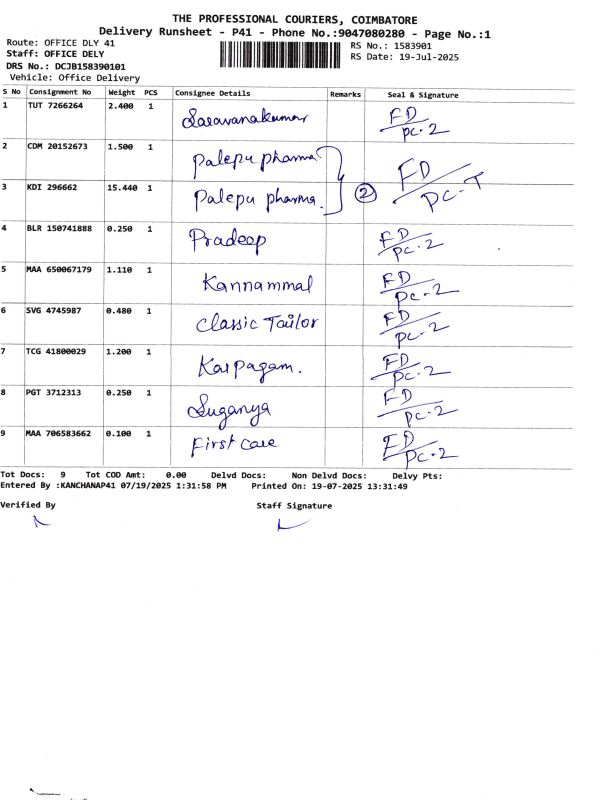 THE PROFESSIONAL COURIERS, COIMBATORE
Delivery Runsheet - P41 - Phone No.:9047080280 - Page No.:1
Route: OFFICE DLY 41 RS No.: 1583901
Staff: OFFICE DELY RS Date: 19-Jul-2025
DRS No.: DCJB158390101
Vehicle: Office Delivery
S No Consignment No Weight PCS Consignee Details Remarks Seal & Signature
1 TUT 7266264 2.400 1 Saravanakumar FD/PC-2
2 CDM 20152673 1.500 1 Palepu pharma
3 KDI 296662 15.440 1 Palepu pharma. 2 FD/PC-T
4 BLR 150741888 0.250 1 Pradeep FD/PC-2
5 MAA 650067179 1.110 1 Kannammal FD/PC-2
6 SVG 4745987 0.480 1 Classic Tailor FD/PC-2
7 TCG 41800029 1.200 1 Karpagam. FD/PC-2
8 PGT 3712313 0.250 1 Suganya FD/PC-2
9 MAA 706583662 0.100 1 First Care FD/PC-2
Tot Docs: 9 Tot COD Amt: 0.00 Delvd Docs: Non Delvd Docs: Delvy Pts:
Entered By :KANCHANAP41 07/19/2025 1:31:58 PM Printed On: 19-07-2025 13:31:49
Verified By Staff Signature